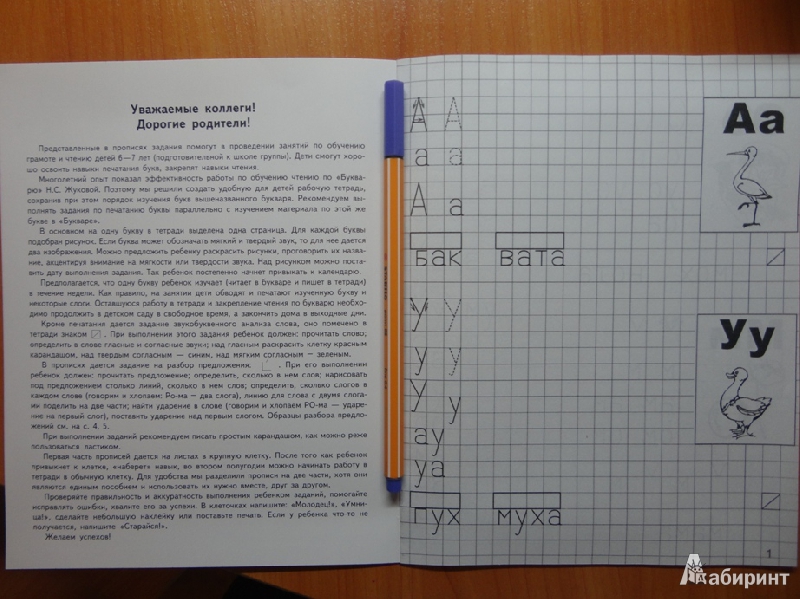 Уважаемые коллеги!
Дорогие родители!
Представленные в прописях задания помогут в проведении занятий по обучению
грамоте и чтению детей 6—7 лет (подготовительной к школе группы). Дети смогут хоро-
шо освоить навыки печатания букв, закрепят навыки чтения.
Многолетний опыт показал эффективность работы по обучению чтению по «Буква-
рю» Н.С. Жуковой. Поэтому мы решили создать удобную для детей рабочую тетрадь,
сохранив при этом порядок изучения букв вышеназванного букваря. Рекомендуем вы-
полнять задания по печатанию буквы параллельно с изучением материала по этой же
букве в «Букваре».
В основном на одну букву в тетради выделена одна страница. Для каждой буквы
подобран рисунок. Если буква может обозначать мягкий и твердый звук, то для нее дается
два изображения. Можно предложить ребенку раскрасить рисунки, проговорить их назва-
ние, акцентируя внимание на мягкости или твердости звука. Над рисунком можно поста-
вить дату выполнения задания. Так ребенок постепенно начнет привыкать к календарю.
Предполагается, что одну букву ребенок изучает (читает в букваре и пишет в тетради)
в течение недели. Как правило, на занятии дети обводят и печатают изученную букву и
некоторые слоги. Оставшуюся работу в тетради и закрепление чтения по букварю необхо-
димо продолжить в детском саду в свободное время, а закончить дома в выходные дни.
Кроме печатания дается задание звукобуквенного анализа слова, оно помечено в
тетради знаком . При выполнении этого задания ребенок должен: прочитать слово;
определить в слове гласные и согласные звуки; над гласным раскрасить клетку красным
карандашом, над твердым согласным — синим, над мягким согласным — зеленым.
В прописях дается задание на разбор предложения. При его выполнении
ребенок должен: прочитать предложение; определить, сколько в нем слов; нарисовать
под предложением столько линий, сколько в нем слов; определить, сколько слогов в
каждом слове (говорим и хлопаем: РО-ма — два слога), линию для слова с двумя слога-
ми поделить на две части; найти ударение в слове (говорим и хлопаем РО-ма — ударе-
ние на первый слог), поставить ударение над первым слогом. Образцы разбора предло-
жений см. на с. 4, 5.
При выполнении заданий рекомендуем писать простым карандашом, как можно реже
пользоваться ластиком.
Первая часть прописей дается на листах в крупную клетку. После того как ребенок
привыкнет к клетке, «наберет» навык, во втором полугодии можно начинать работу в
тетради в обычную клетку. Для удобства мы разделили прописи на две части, хотя они
являются единым пособием и использовать их нужно вместе, друг за другом.
Проверяйте правильность и аккуратность выполнения ребенком заданий, помогайте
исправлять ошибки, хвалите его за успехи. В клеточках напишите «Молодец!», «Умни-
ца!», сделайте небольшую наклейку или поставьте печать. Если у ребенка что-то не
получается, напишите «Старайся!».
Желаем успехов!
А А
а а
А а
бак вата
Аа
У У
у у
У у
ау
уа
Уу
пух муха
1
Лабиринт